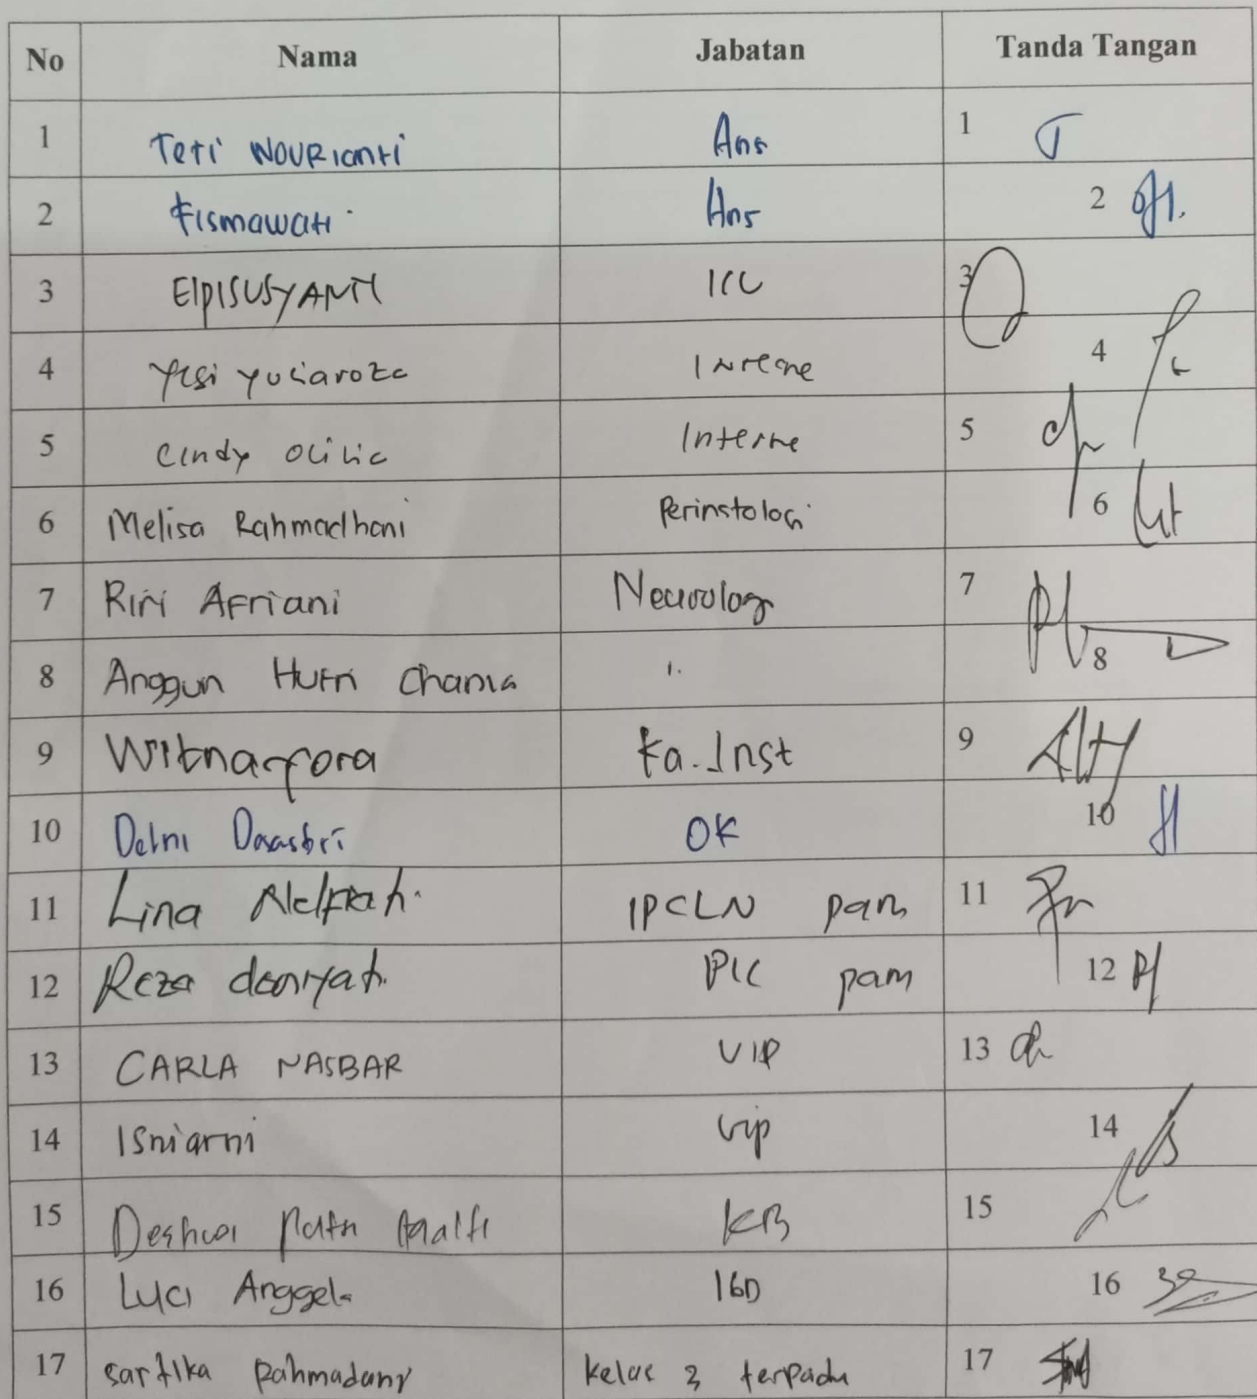 No Nama Jabatan Tanda Tangan
1 Teti NOURIanti Ans 1
2 Fismawati Ans 2
3 ElpISUSYANTI ICU 3
4 Yesi yuliaroza Interne 4
5 Cindy Olivia Interne 5
6 Melisa Rahmadhani Perinatologi 6
7 Riri Afriani Neurologi 7
8 Anggun Hutri Chania 8
9 Witnarfora Ka. Inst 9
10 Delni OK 10
11 Lina IPCLN pam 11
12 Reza PIC pam 12
13 CARLA NASBAR VIP 13
14 Isniarni Vip 14
15 KB 15
16 Luci Anggela IGD 16
17 Sartika Rahmadany Kelas 3 terpadu 17